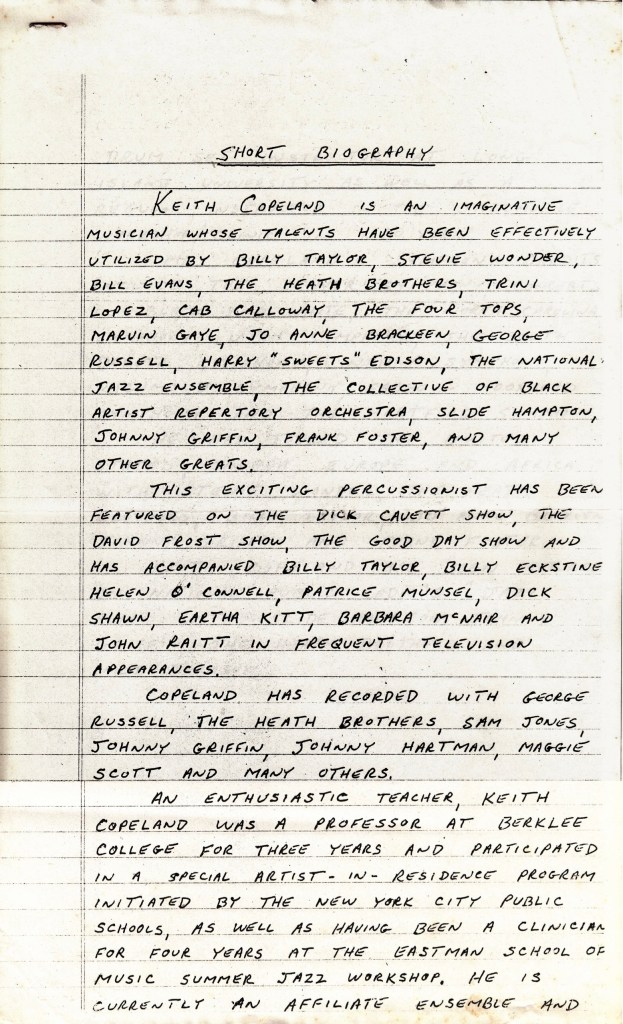 SHORT BIOGRAPHY
KEITH COPELAND IS AN IMAGINATIVE
MUSICIAN WHOSE TALENTS HAVE BEEN EFFECTIVELY
UTILIZED BY BILLY TAYLOR, STEVIE WONDER,
BILL EVANS, THE HEATH BROTHERS, TRINI
LOPEZ, CAB CALLOWAY, THE FOUR TOPS,
MARVIN GAYE, JO ANNE BRACKEEN, GEORGE
RUSSELL, HARRY "SWEETS" EDISON, THE NATIONAL
JAZZ ENSEMBLE, THE COLLECTIVE OF BLACK
ARTIST REPERTORY ORCHESTRA, SLIDE HAMPTON,
JOHNNY GRIFFIN, FRANK FOSTER, AND MANY
OTHER GREATS.
THIS EXCITING PERCUSSIONIST HAS BEEN
FEATURED ON THE DICK CAVETT SHOW, THE
DAVID FROST SHOW, THE GOOD DAY SHOW AND
HAS ACCOMPANIED BILLY TAYLOR, BILLY ECKSTINE
HELEN O'CONNELL, PATRICE MUNSEL, DICK
SHAWN, EARTHA KITT, BARBARA McNAIR AND
JOHN RAITT IN FREQUENT TELEVISION
APPEARANCES.
COPELAND HAS RECORDED WITH GEORGE
RUSSELL, THE HEATH BROTHERS, SAM JONES,
JOHNNY GRIFFIN, JOHNNY HARTMAN, MAGGIE
SCOTT AND MANY OTHERS.
AN ENTHUSIASTIC TEACHER, KEITH
COPELAND WAS A PROFESSOR AT BERKLEE
COLLEGE FOR THREE YEARS AND PARTICIPATED
IN A SPECIAL ARTIST-IN-RESIDENCE PROGRAM
INITIATED BY THE NEW YORK CITY PUBLIC
SCHOOLS, AS WELL AS HAVING BEEN A CLINICIAN
FOR FOUR YEARS AT THE EASTMAN SCHOOL OF
MUSIC SUMMER JAZZ WORKSHOP. HE IS
CURRENTLY AN AFFILIATE ENSEMBLE AND